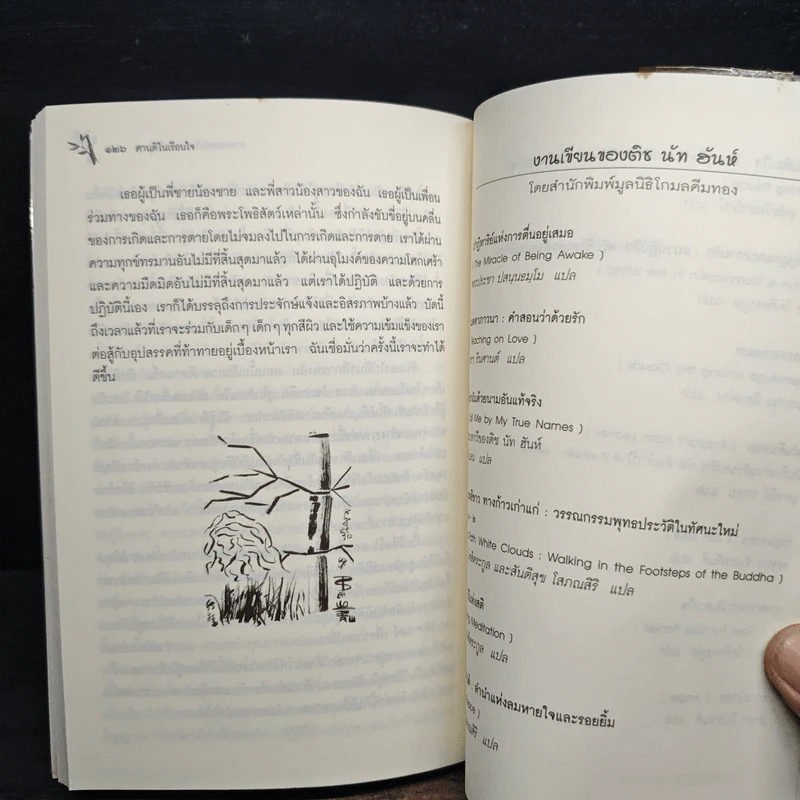 ๑๒๖ ศานติในเรือนใจ
เธอผู้เป็นพี่ชายน้องชาย และพี่สาวน้องสาวของฉัน เธอผู้เป็นเพื่อน
ร่วมทางของฉัน เธอก็คือพระโพธิสัตว์เหล่านั้น ซึ่งกำลังขับขี่อยู่บนคลื่น
ของการเกิดและการตายโดยไม่จมลงไปในการเกิดและการตาย เราได้ผ่าน
ความทุกข์ทรมานอันไม่มีที่สิ้นสุดมาแล้ว ได้ผ่านอุโมงค์ของความโศกเศร้า
และความมืดมิดอันไม่มีที่สิ้นสุดมาแล้ว แต่เราได้ปฏิบัติ และด้วยการ
ปฏิบัตินี้เอง เราก็ได้บรรลุถึงการประจักษ์แจ้งและอิสรภาพบ้างแล้ว บัดนี้
ถึงเวลาแล้วที่เราจะร่วมกับเด็กๆ เด็กๆ ทุกสีผิว และใช้ความเข้มแข็งของเรา
ต่อสู้กับอุปสรรคที่ท้าทายอยู่เบื้องหน้าเรา ฉันเชื่อมั่นว่าครั้งนี้เราจะทำได้
ดีขึ้น
งานเขียนของติช นัท ฮันห์
โดยสำนักพิมพ์มูลนิธิโกมลคีมทอง
ปาฏิหาริย์แห่งการตื่นอยู่เสมอ
The Miracle of Being Awake )
พระประชา ปสนฺนธมฺโม แปล
เมตตาภาวนา : คำสอนว่าด้วยรัก
Teaching on Love )
จินดานนท์ แปล
ด้วยนามอันแท้จริง
Me by My True Names )
กวีของติช นัท ฮันห์
แปล
ทางก้าวเก่าแก่ : วรรณกรรมพุทธประวัติในทัศนะใหม่
White Clouds : Walking in the Footsteps of the Buddha )
และสันติสุข โสภณสิริ แปล
Meditation )
แปล
: ลำนำแห่งลมหายใจและรอยยิ้ม
แปล